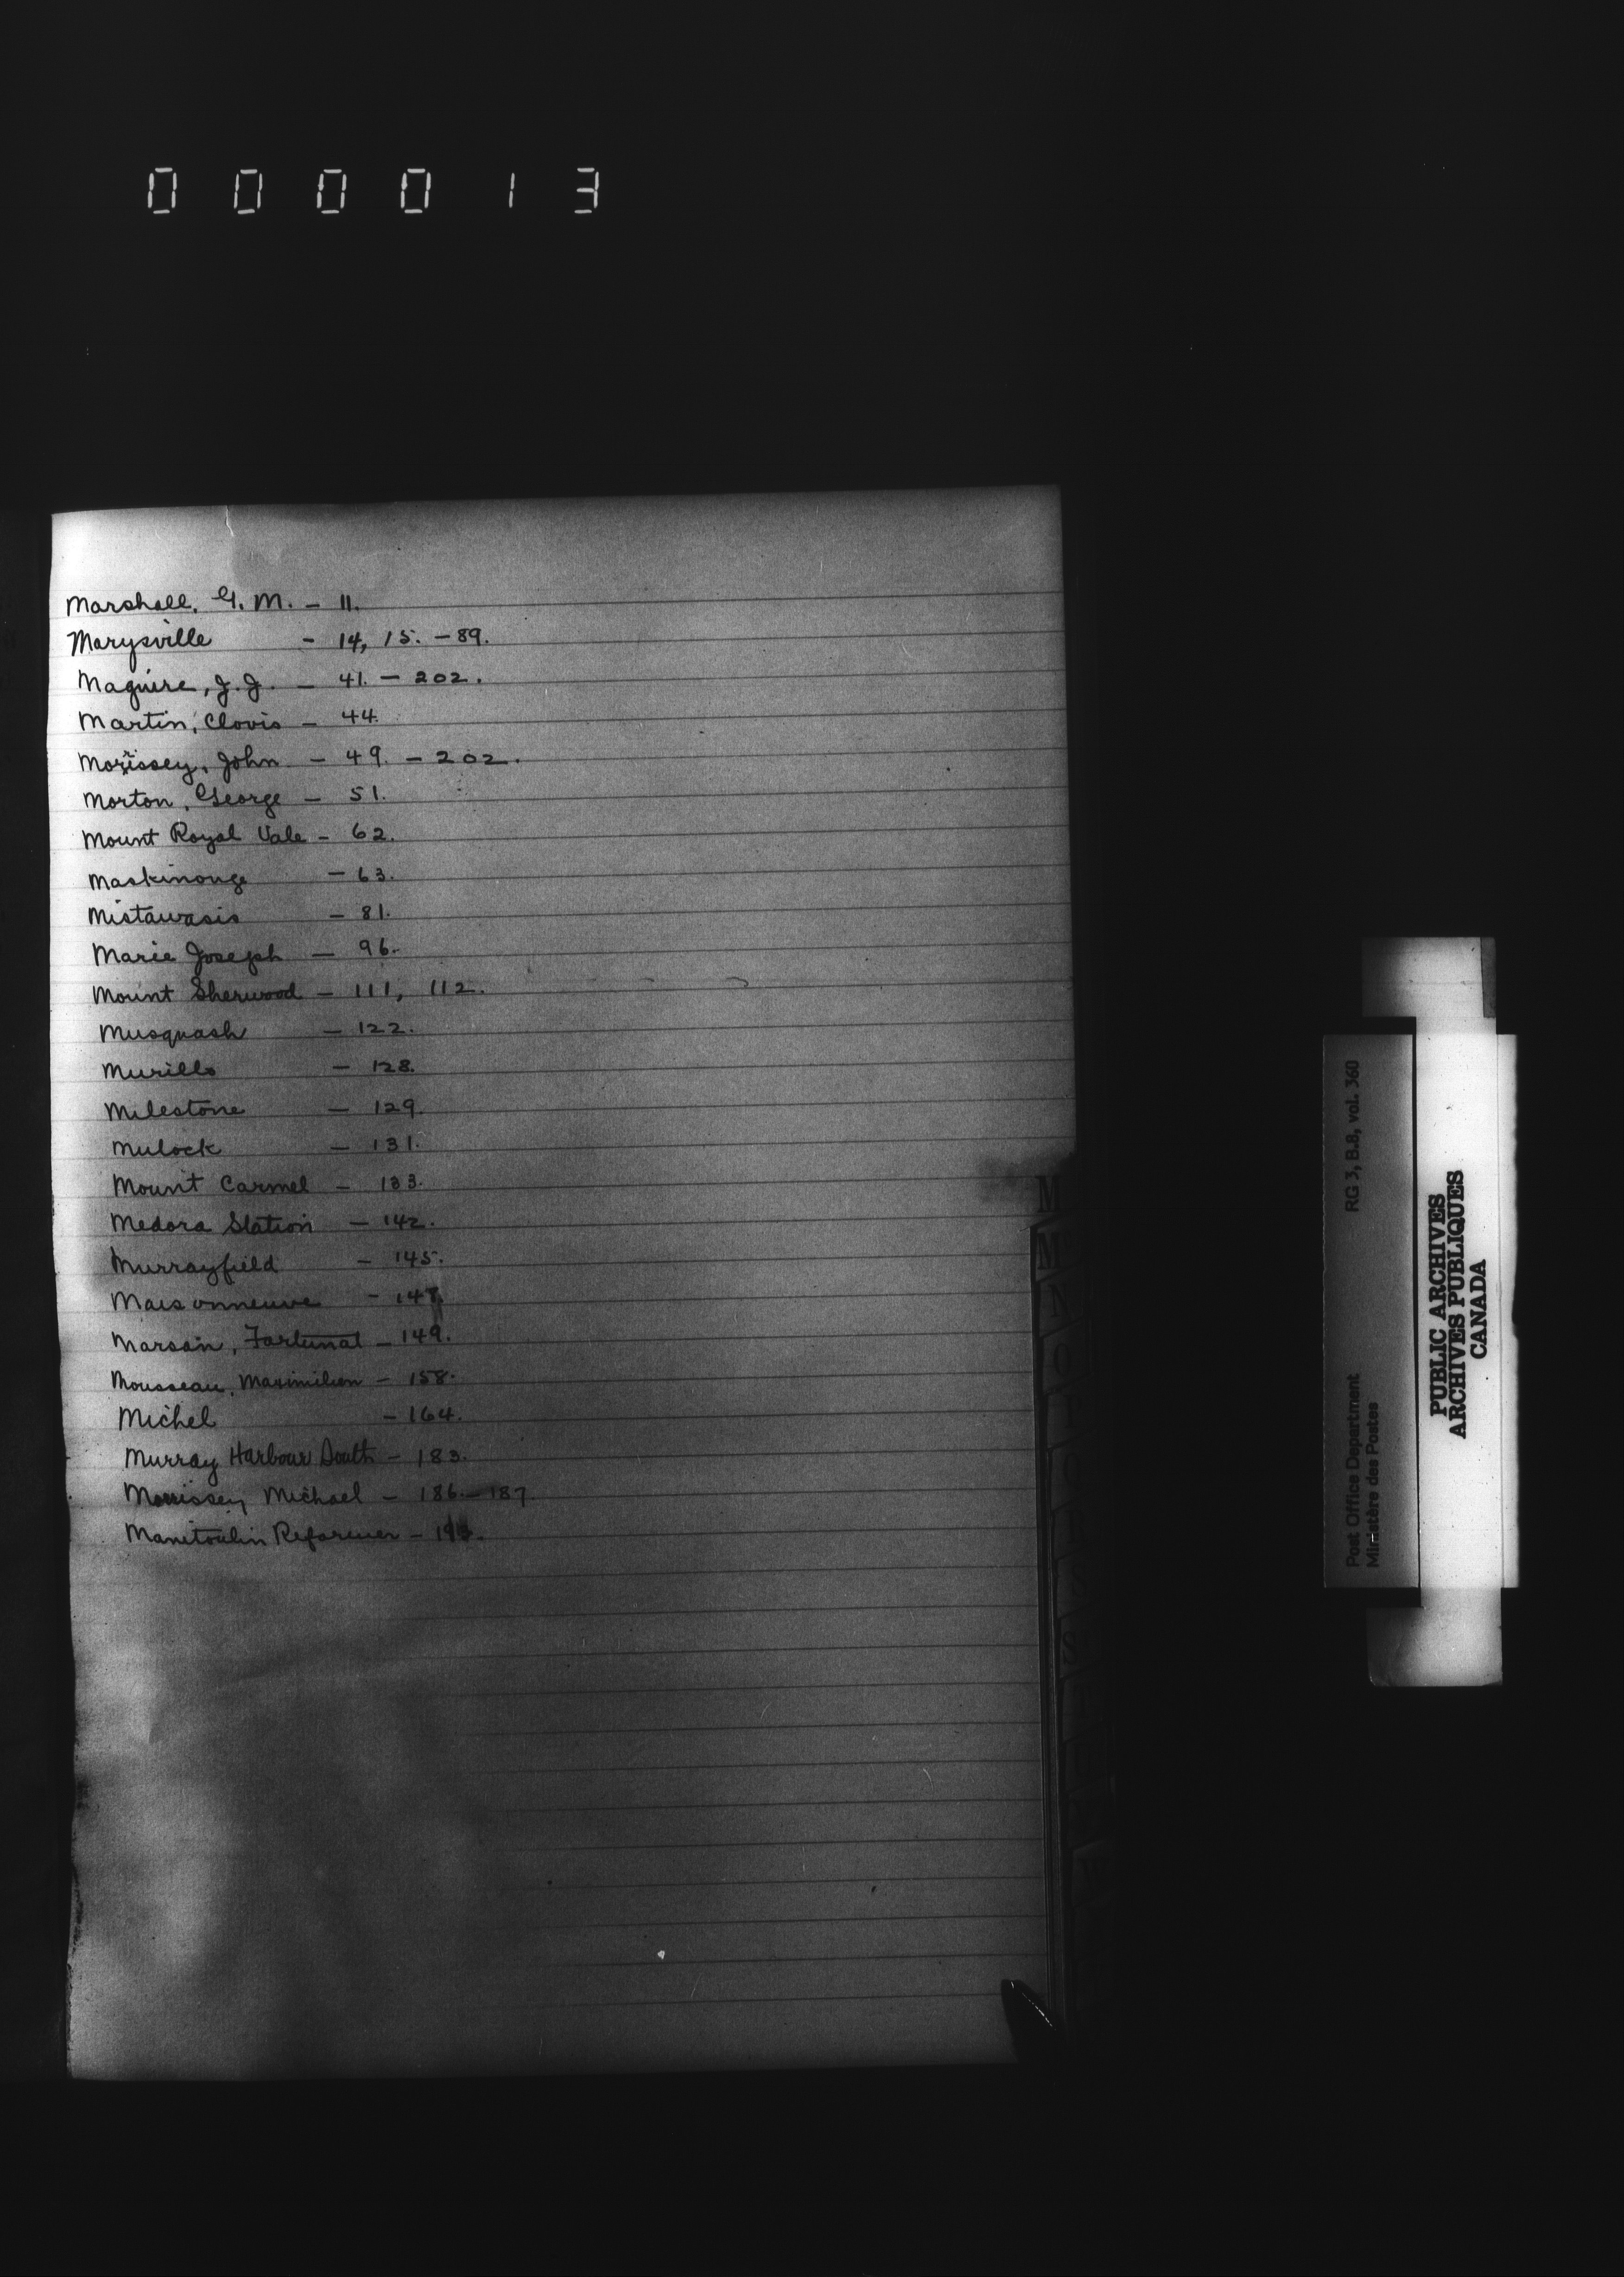 000013
Marshall, G. M. - 11.
Marysville - 14, 15. - 89.
Maguire, J. J. - 41. - 202.
Martin, Clovis - 44.
Morrissey, John - 49. - 202.
Morton, George - 51.
Mount Royal Vale - 62.
Maskinonge - 63.
Mistawasis - 81.
Marie Joseph - 96.
Mount Sherwood - 111, 112.
Musquash - 122.
Murillo - 128.
Milestone - 129.
Mulock - 131.
Mount Carmel - 133.
Medora Station - 142.
Murrayfield - 145.
Maisonneuve - 148.
Marsan, Fortunat - 149.
Mousseau, Maximilien - 158.
Michel - 164.
Murray Harbour South - 183.
Morrissey Michael - 186. - 187
Manitoulin Reformer -
M
Mc
N
O
S
RG 3, B.8, vol. 360
Post Office Department
Ministère des Postes
PUBLIC ARCHIVES
ARCHIVES PUBLIQUES
CANADA